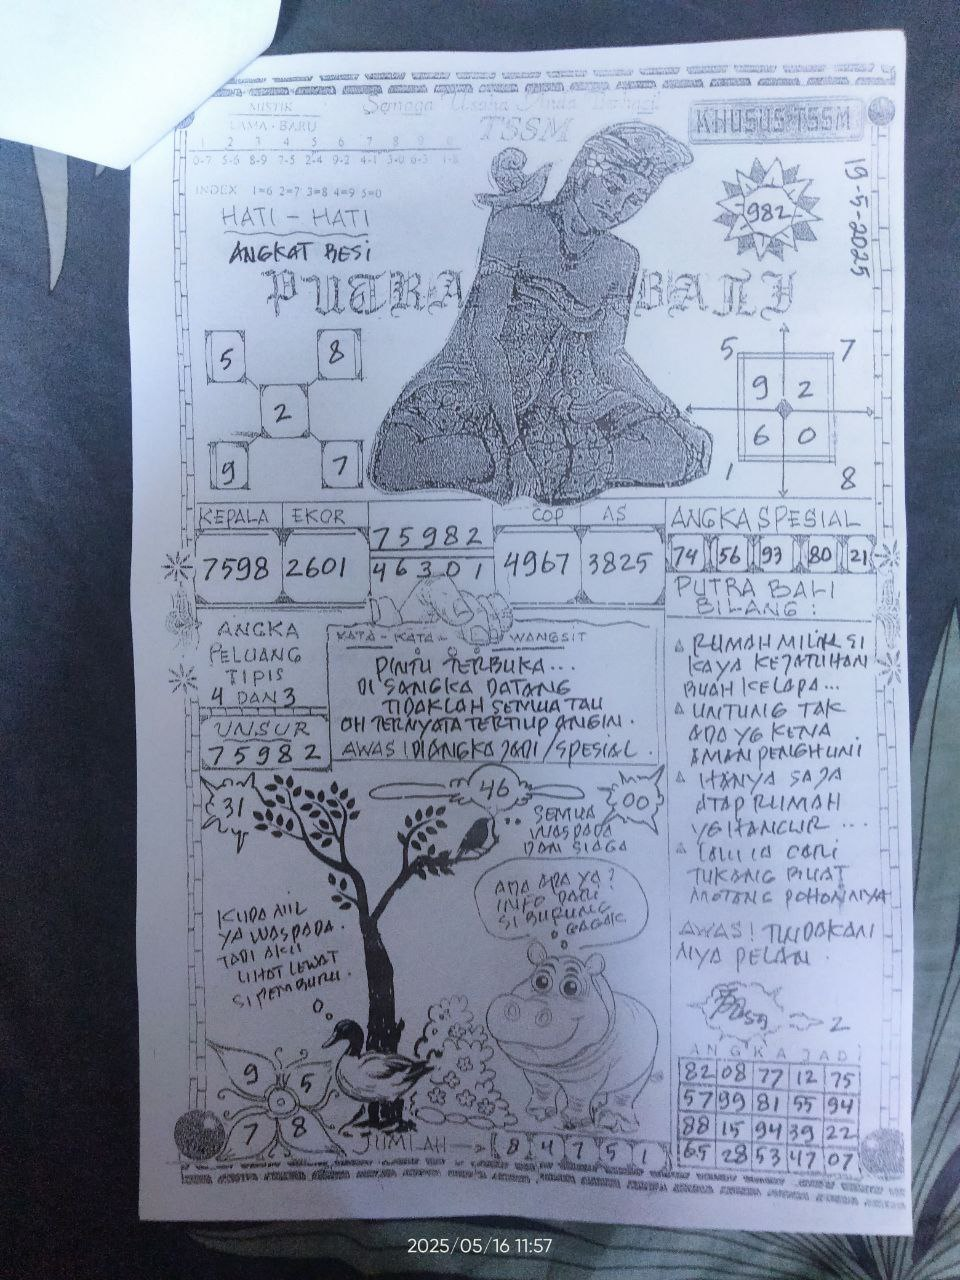 MISTIK
LAMA - BARU
1 2 3 4 5 6 7 8 9 0
0-7 5-6 8-9 7-5 2-4 9-2 4-1 3-0 6-3 1-8
INDEX 1=6 2=7 3=8 4=9 5=0
Semoga Usaha Anda Berhasil
TSSM
KHUSUS TSSM
19-5-2025
982
HATI - HATI
ANGKAT BESI
PUTRA BALI
5 8
2
9 7
5 7
9 2
6 0
1 8
KEPALA EKOR
7598 2601
75982
46301
COP AS
4967 3825
ANGKA SPESIAL
74 56 93 80 21
ANGKA
PELUANG
TIPIS
4 DAN 3
UNSUR
75982
KATA - KATA - WANGSIT
PINTU TERBUKA...
DI SANGKA DATANG
TIDAKLAH SEMUA TAU
OH TERNYATA TERTIUP ANGIN.
AWAS! DIANGKA JADI / SPESIAL.
PUTRA BALI
BILANG:
RUMAH MILIK SI
KAYA KEJATUHAN
BUAH KELAPA...
UNTUNG TAK
ADA YG KENA
AMAN PENGHUNI
HANYA SAJA
ATAP RUMAH
YG HANCUR ...
CARI
TUKANG BUAT
MOTONG POHONNYA
AWAS! TINDAKAN
NYA PELAN.
31
46
00
SEMUA
WASPADA
DAN SIAGA
ADA APA YA?
INFO DARI
SI BURUNG
GAGAK
YA WASPADA.
TADI AKU
LIHAT LEWAT
SI PEMBURU.
9 5
7 8
JUMLAH 8 4 7 5 1
2
ANGKA JADI
82 08 77 12 75
57 99 81 55 94
88 15 94 39 22
65 28 53 47 07
2025/05/16 11:57